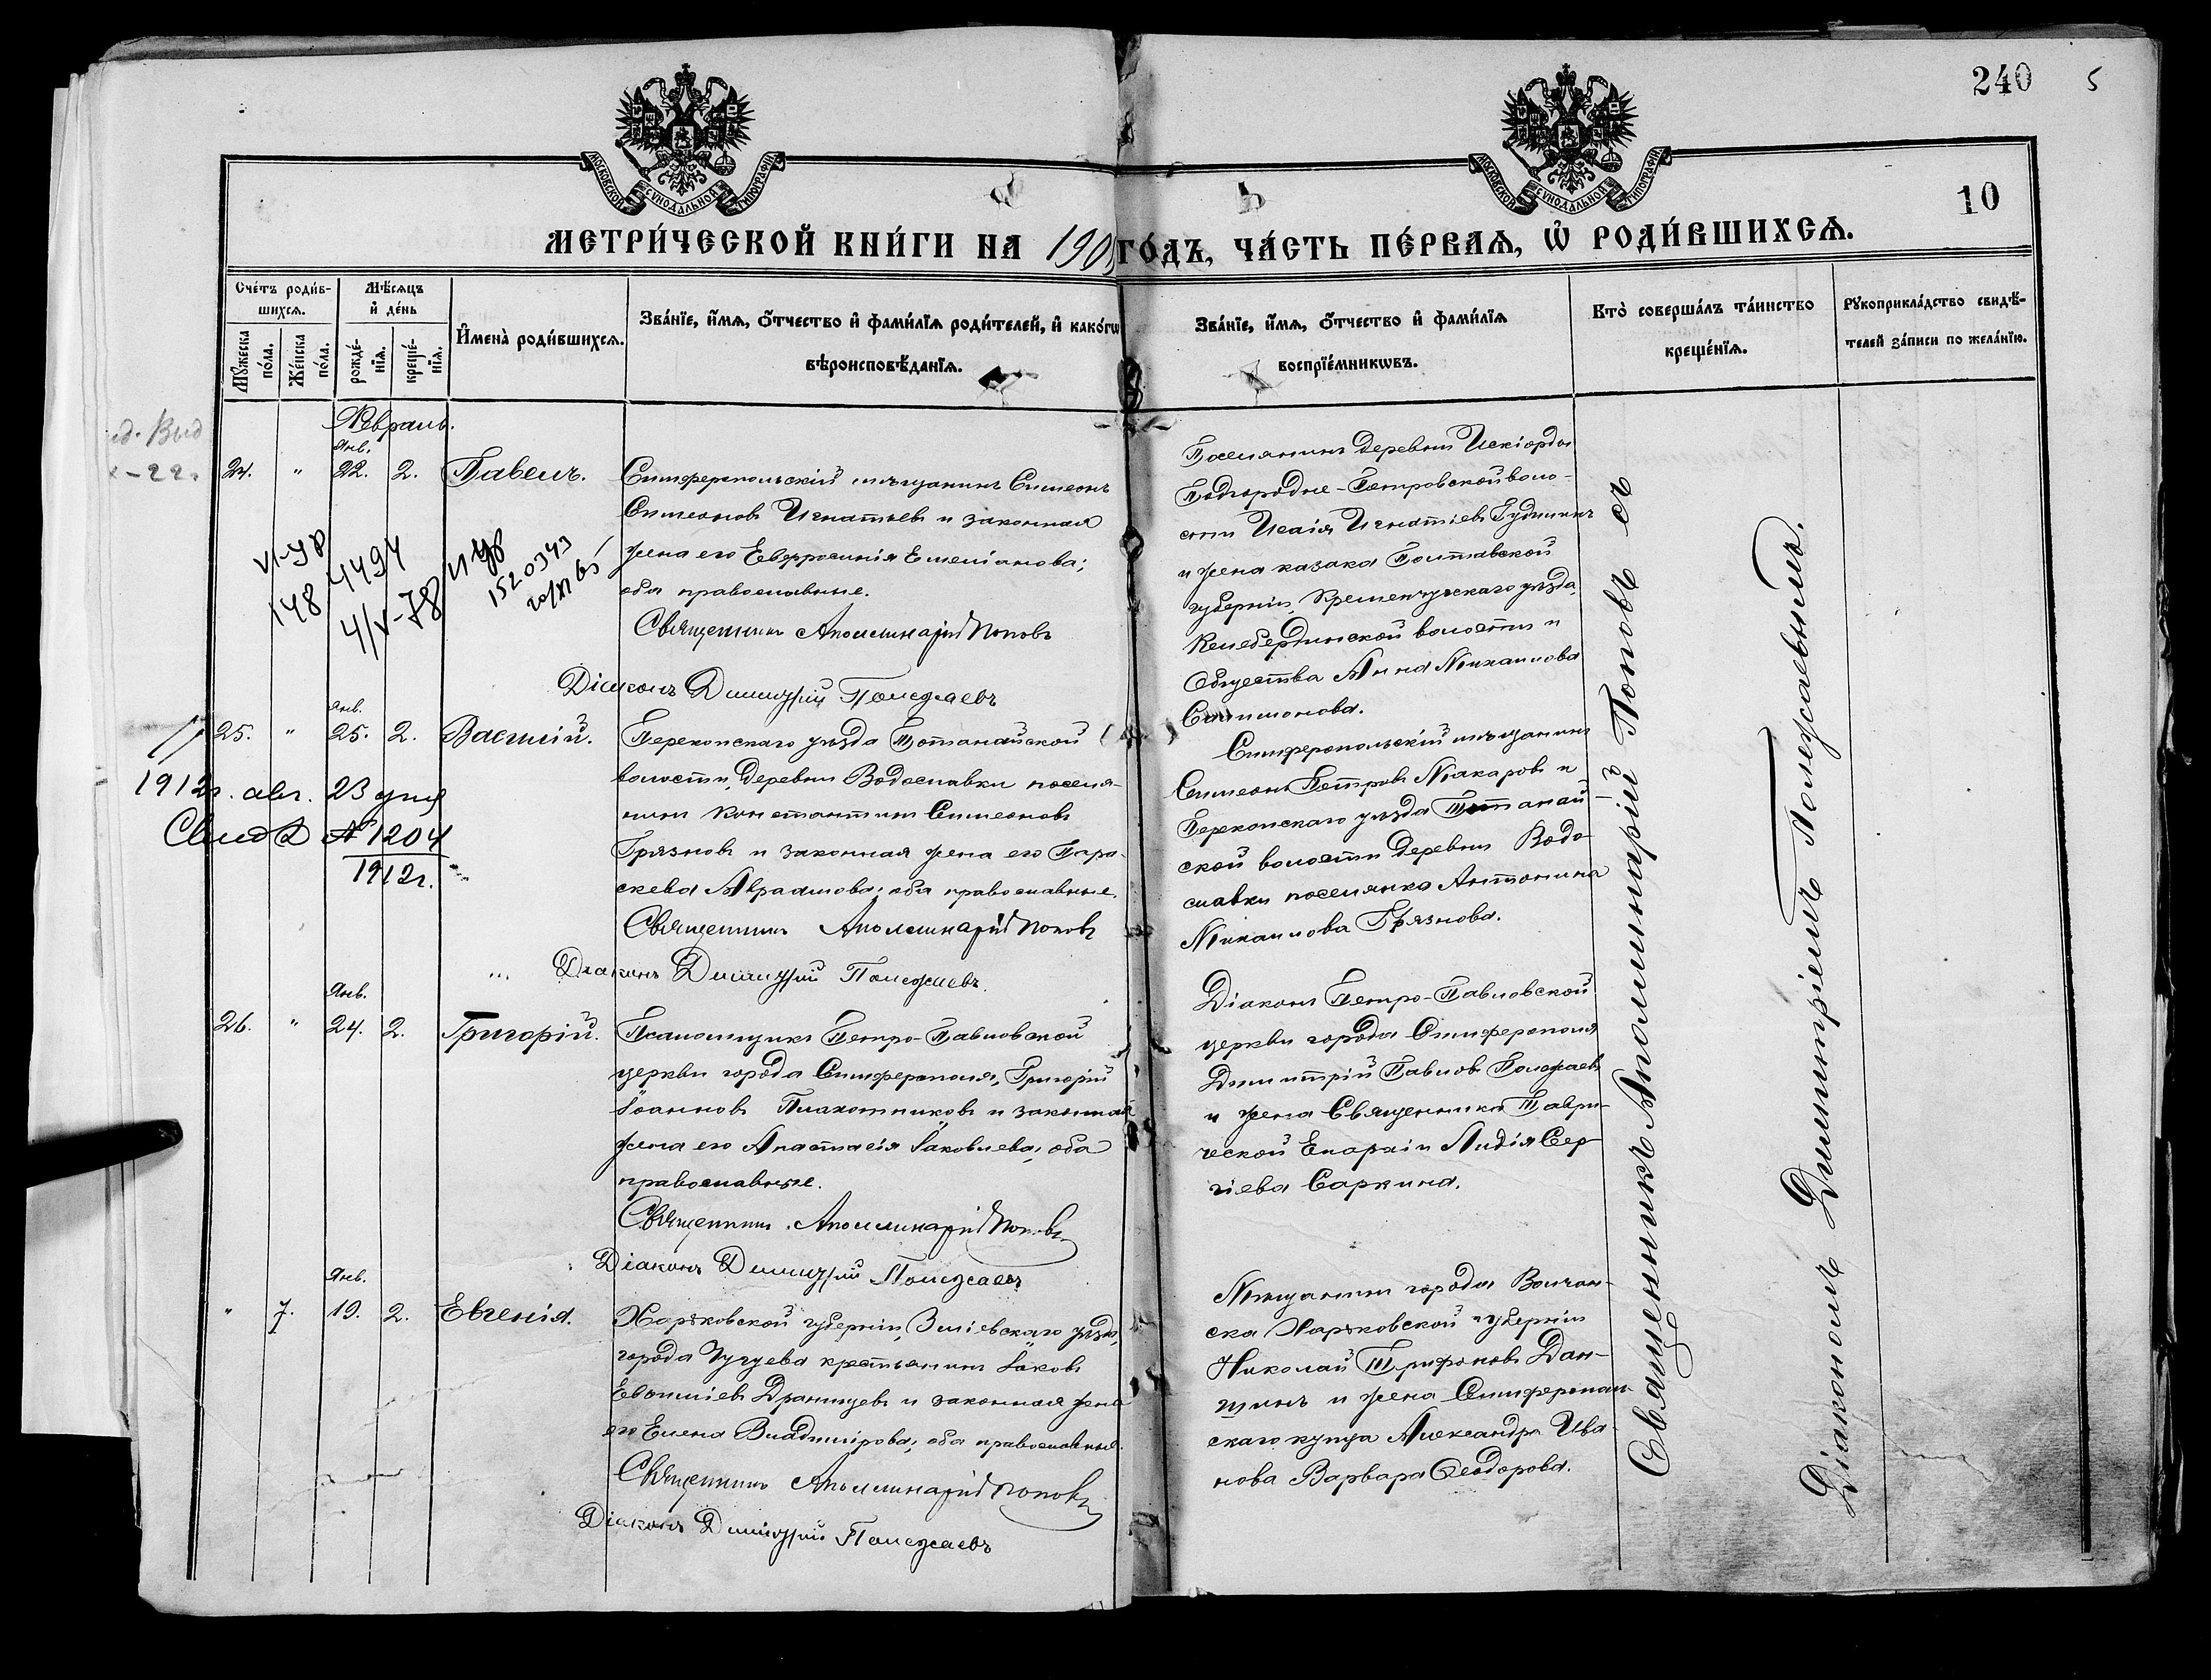 240 5
10
МОСКОВСКОЙ СѴНОДАЛЬНОЙ ТИПОГРАФІИ
МОСКОВСКОЙ СѴНОДАЛЬНОЙ ТИПОГРАФІИ
МЕТРИ́ЧЕСКОЙ КНИ́ГИ НА 190 ГО́ДЪ, ЧА́СТЬ ПЕ́РВАѦ, Ѡ҆ РОДИ́ВШИХСѦ.
Сче́тъ роди́в-
шихсѧ.
Мꙋжеска
по́ла.
Же́нска
по́ла.
Мѣ́сѧцъ
и҆ де́нь
рожде́-
нїѧ.
креще́-
нїѧ.
И҆мена̀ роди́вшихсѧ.
Зва́нїе, и҆́мѧ, ѻ҆́тчество и҆ фами́лїѧ роди́телей, и҆ како́гѡ
вѣроисповѣ́данїѧ.
Зва́нїе, и҆́мѧ, ѻ҆́тчество и҆ фами́лїѧ
воспрїе́мникѡвъ.
Кто̀ соверша́лъ та́инство
креще́нїѧ.
Рꙋкоприкла́дство свидѣ́-
телей за́писи по жела́нїю.
Февраль.
Янв.
24. " 22. 2. Павелъ.
Симферопольскій мѣщанинъ Симеонъ
Симеоновъ Игнатьевъ и законная
жена его Евфросинія Емеліанова;
оба православные.
Священникъ Аполлинарій Поповъ
Діаконъ Димитрій Полежаевъ
Поселянинъ деревни
Подгородне-Петровской воло-
сти Исаія Игнатіевъ Гудилинъ
и жена казака Полтавской
губерніи, Кременчугскаго уѣзда,
Келебердинской волости и
общества Анна Михаилова
148 4494
4/V-78
1520343
Янв.
25. " 25. 2. Василій.
Перекопскаго уѣзда Тотанайской
волости, деревни Водославки поселя-
нинъ Константинъ Симеоновъ
Грязновъ и законная жена его Пара-
скева Авраамова; оба православные.
Священникъ Аполлинарій Поповъ
Діаконъ Димитрій Полежаевъ.
Симферопольскій мѣщанинъ
Симеонъ Петровъ Макаровъ и
Перекопскаго уѣзда Тотанай-
ской волости деревни Водо-
славки поселянка Антонина
Михаилова Грязнова.
1912г. авг. 23 дня
Свид № 1204
1912г.
Янв.
26. " 24. 2. Григорій.
Псаломщикъ Петро-Павловской
церкви города Симферополя, Григорій
Іоанновъ Плахотниковъ и законная
жена его Анастасія Іаковлева, оба
православные.
Священникъ Аполлинарій Поповъ
Діаконъ Димитрій Полежаевъ
Діаконъ Петро-Павловской
церкви города Симферополя
Димитрій Павловъ Полежаевъ
и жена Священника Таври-
ческой Епархіи Лидія Сер-
гіева Саркина.
Янв.
" 7. 19. 2. Евгенія.
Харьковской губерніи, Зміевскаго уѣзда,
города Чугуева крестьянинъ Іаковъ
Евѳиміевъ Дранищевъ и законная жена
его Елена Владимірова; оба православные.
Священникъ Аполлинарій Поповъ
Діаконъ Димитрій Полежаевъ
Мѣщанинъ города Волчан-
ска Харьковской губерніи
Николай Трифоновъ Дан-
шинъ и жена Симферополь-
скаго купца Александра Ива-
нова Варвара Ѳеодорова.
Священникъ Аполлинарій Поповъ съ
Діакономъ Димитріемъ Полежаевымъ.